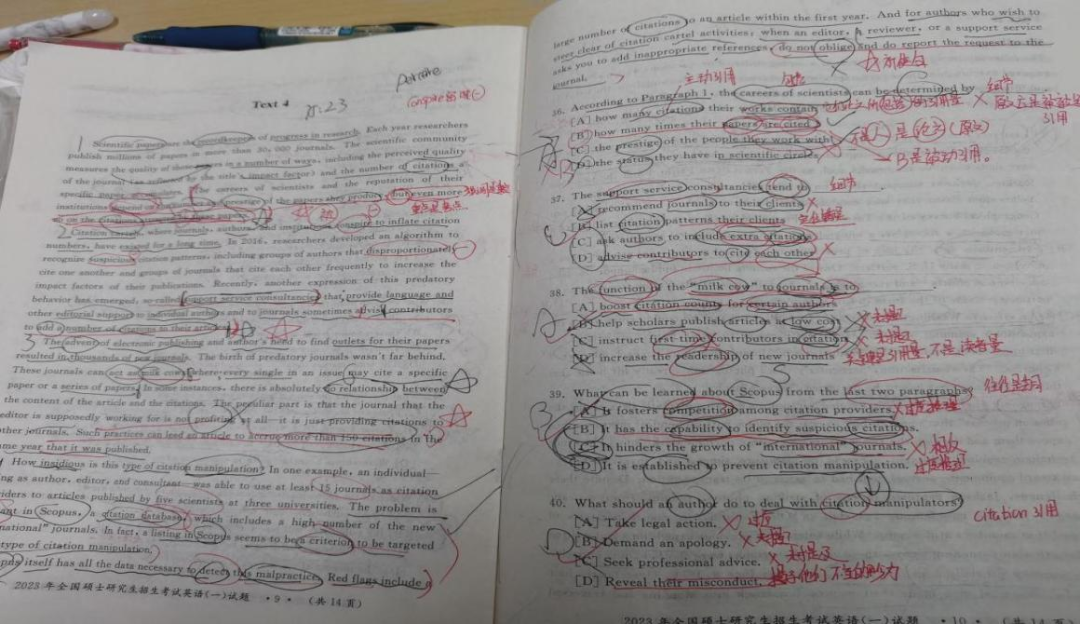 Text 4
Scientific papers are the recordkeepers of progress in research. Each year researchers
publish millions of papers in more than 30,000 journals. The scientific community
measures the quality of those papers in a number of ways, including the perceived quality
of the journal (as reflected by the title's impact factor) and the number of citations a
specific paper The careers of scientists and the reputation of their
institutions depend on the prestige of the papers they produce, but even more
so on the citations these papers
2 Citation cartels, where journals, authors, and institutions conspire to inflate citation
numbers, have existed for a long time. In 2016, researchers developed an algorithm to
recognize suspicious citation patterns, including groups of authors that disproportionately
cite one another and groups of journals that cite each other frequently to increase the
impact factors of their publications. Recently, another expression of this predatory
behavior has emerged: so-called support service consultancies that provide language and
other editorial support to individual authors and to journals sometimes advise contributors
to add a number of citations to their articles.
3 The advent of electronic publishing and author's need to find outlets for their papers
resulted in thousands of new journals. The birth of predatory journals wasn't far behind.
These journals can act as milk cows where every single article in an issue may cite a specific
paper or a series of papers. In some instances, there is absolutely no relationship between
the content of the article and the citations. The peculiar part is that the journal that the
editor is supposedly working for is not profiting at all — it is just providing citations to
other journals. Such practices can lead an article to accrue more than 150 citations in the
same year that it was published.
How insidious is this type of citation manipulation? In one example, an individual—
ng as author, editor, and consultant—was able to use at least 15 journals as citation
viders to articles published by five scientists at three universities. The problem is
ant in Scopus, a citation database, which includes a high number of the new
national" journals. In fact, a listing in Scopus seems to be a criterion to be targeted
type of citation manipulation.
pus itself has all the data necessary to detect this malpractice. Red flags include a
2023 年全国硕士研究生招生考试英语(一)试题 · 9 · (共 14 页)
large number of citations to an article within the first year. And for authors who wish to
steer clear of citation cartel activities, when an editor, a reviewer, or a support service
asks you to add inappropriate references, do not oblige and do report the request to the
journal.
主动引用
细节
36. According to Paragraph 1, the careers of scientists can be determined by
[A] how many citations their works contain
[B] how many times their papers are cited
[C] the prestige of the people they work with
不是人 是论文(原文)
[D] the status they have in scientific circles
B是被动引用。
37. The support service consultancies tend to
细节
[A] recommend journals to their clients
[B] list citation patterns their clients
[C] ask authors to include extra citations
[D] advise contributors to cite each other
38. The function of the "milk cow" to journals is to
[A] boost citation counts for certain authors
[B] help scholars publish articles at low cost
未提及
[C] instruct first-time contributors in citation
未提及
[D] increase the readership of new journals
39. What can be learned about Scopus from the last two paragraphs?
[A] It fosters competition among citation providers.
[B] It has the capability to identify suspicious citations.
[C] It hinders the growth of "international" journals.
[D] It is established to prevent citation manipulation.
40. What should an author do to deal with citation manipulators?
citation 引用
[A] Take legal action.
[B] Demand an apology.
未提及
[C] Seek professional advice.
未提及
[D] Reveal their misconduct.
2023 年全国硕士研究生招生考试英语(一)试题 · 10 · (共 14 页)